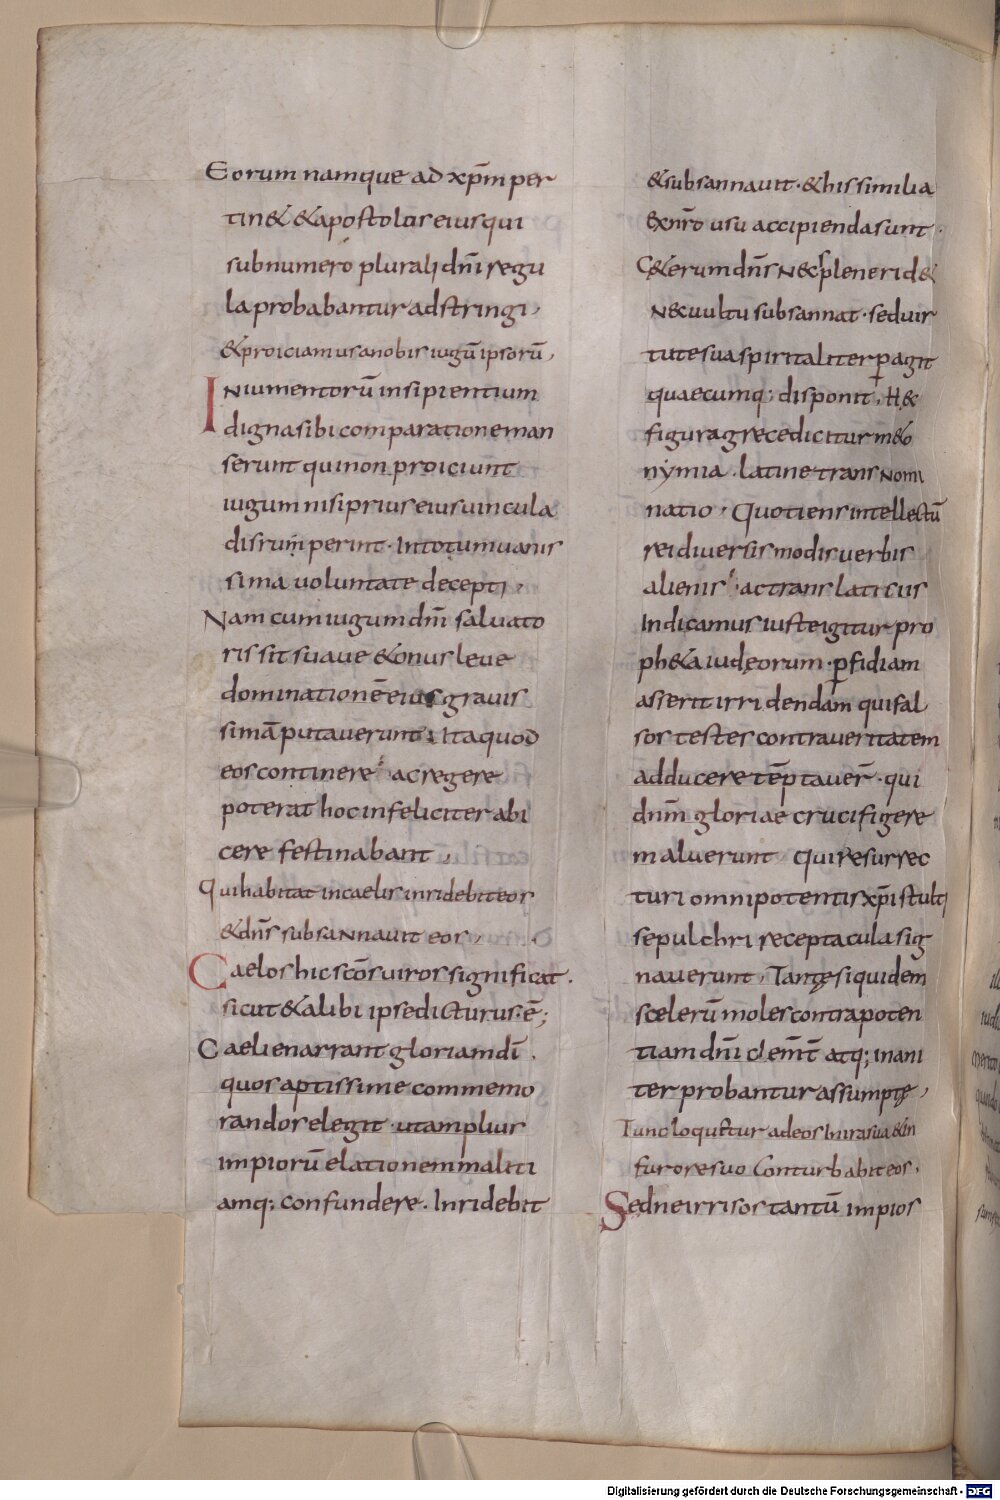 Eorum namque ad xp̄m per
tin& & apostolus eius qui
sub numero plurali dn̄i regu
la probabantur adstringi,
& proiciamus a nobis iugū ipsorū,
INiumentorū insipientium
digna sibi comparatione man
serunt qui non proiciunt
iugum nisi prius eius uincula
disrumperint. In totum uanis
sima uoluntate decepti,
Nam cum iugum dn̄i saluato
ris sit suaue & onus leue
dominationē eius grauis
simā putauerunt; Ita quod
eos continere ac regere
poterat hoc infeliciter abi
cere festinabant,
Qui habitat in caelis inridebit eos
& dn̄s subsaNnauit eos,
Caelos hic scōs uiros significat.
sicut & alibi ipse dicturus. ē;
Caeli enarrant gloriam dī.
quos aptissime commemo
randos elegit. ut amplius
impiorū elationem maliti
amq; confunder&e. Inridebit
& subsannauit. & his similia
ex nr̄o usu accipienda sunt.
C&erum dn̄s Nec spleneride&
Nec uultu subsannat. sed uir
tute sua spiritaliter ꝑagit
quaecumq; disponit, H&
figura grece dicitur m&o
nymia. latine transNomi
natio, Quotiens intellectū
rei diuersis modis uerbis
alienis ac translatiuis
Indicamus iuste igitur pro
ph&a iudęorum. ꝑfidiam
asserit irridendam qui fal
sos testes contra ueritatem
adducere tēptauer̄. qui
dnm̄ gloriae crucifigere
maluerunt, Qui resurrec
turi omnipotentis xp̄i stulti
sepulchri receptacula sig
nauerunt, Tantę siquidem
scelerū moles contra poten
tiam dn̄i clem̄t atq; inani
ter probantur assumptę,
Tunc loquetur ad eos In ira sua & in
furore suo Conturbabit eos.
Sed ne irrisos tantū impios
Digitalisierung gefördert durch die Deutsche Forschungsgemeinschaft - DFG